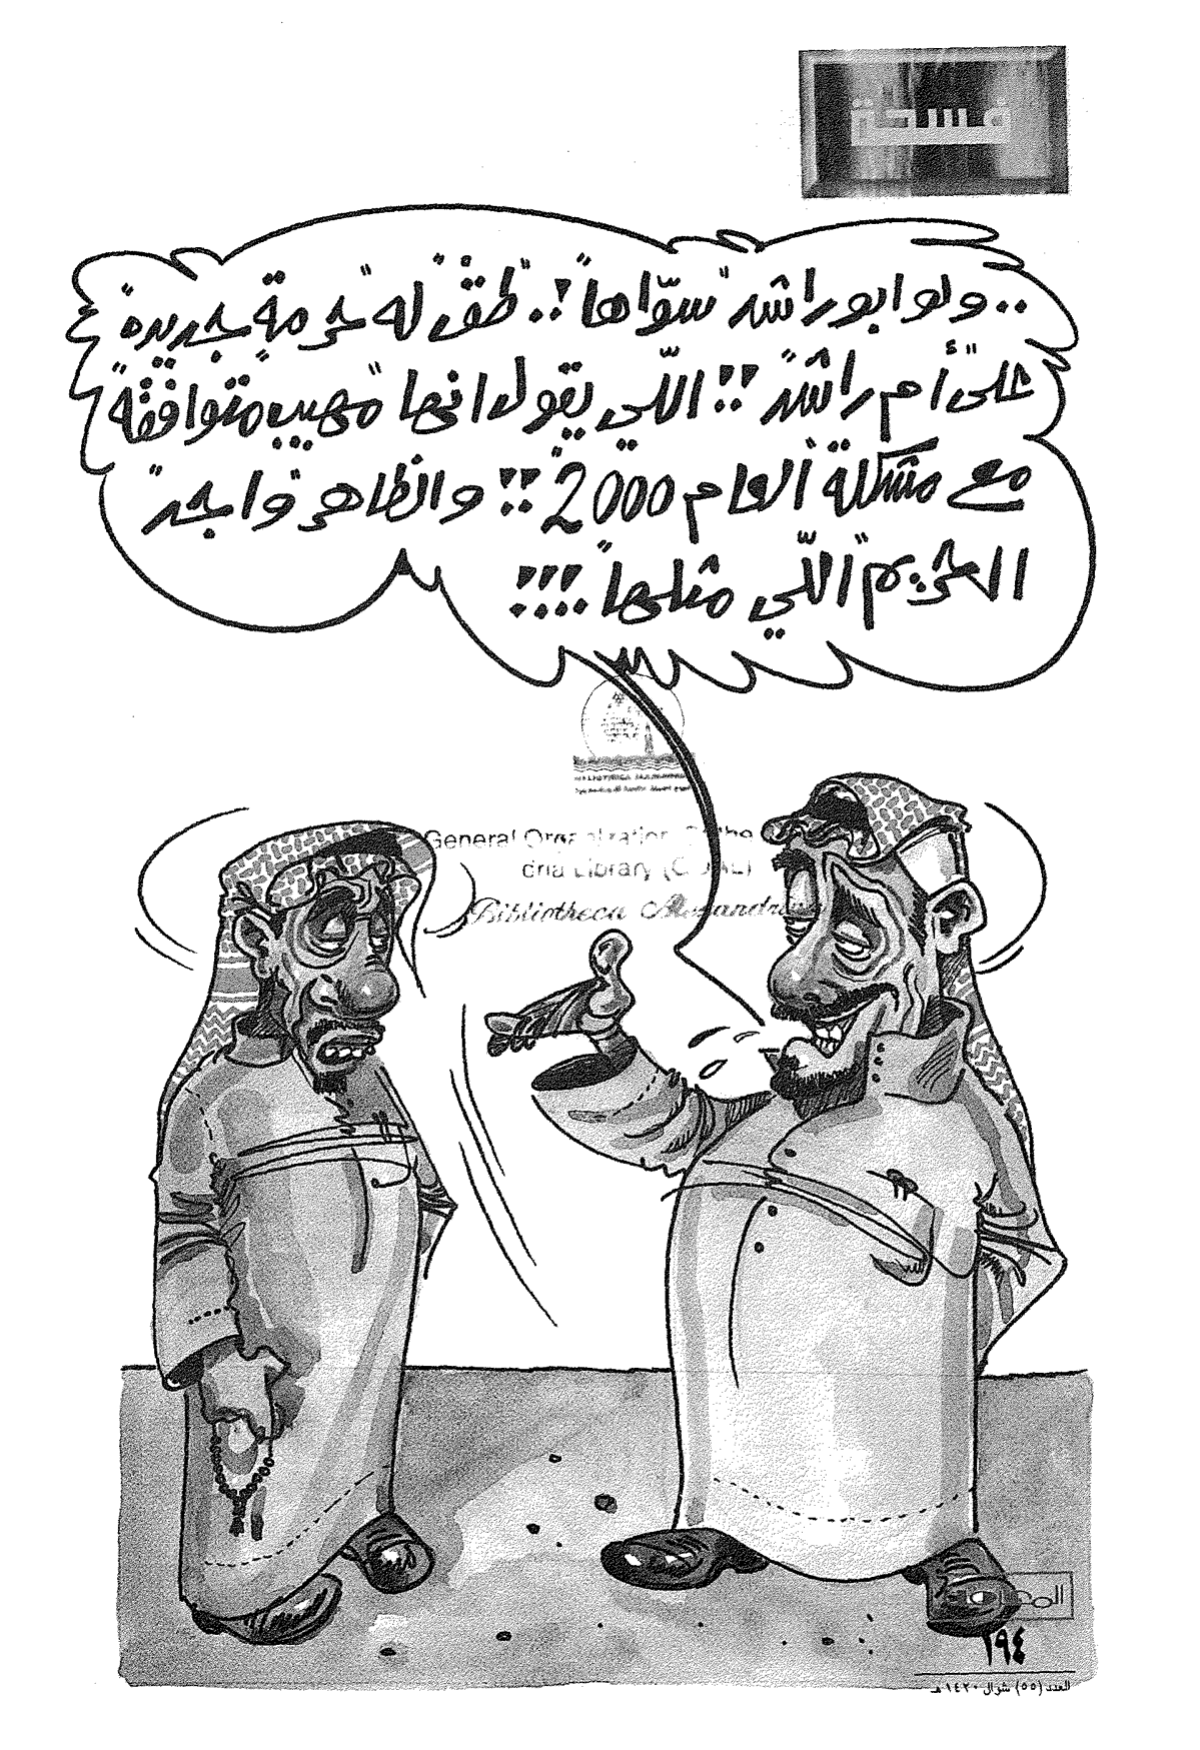 فسحة
..ولو ابو راشد "سوّاها"!.. "طقْ" له "حرمةٍ جديده"
على أم راشد!! اللّي يقول انها "مهيب متوافقه"
مع مشكلة العام 2000"!! والظاهر "واجد"
الحريم "اللّي مثلها"!!!
General Organization Of the
dria Library (GOAL)
Bibliotheca Alexandrina
١٩٤
العدد (٥٥) شوال ١٤٢٠هـ